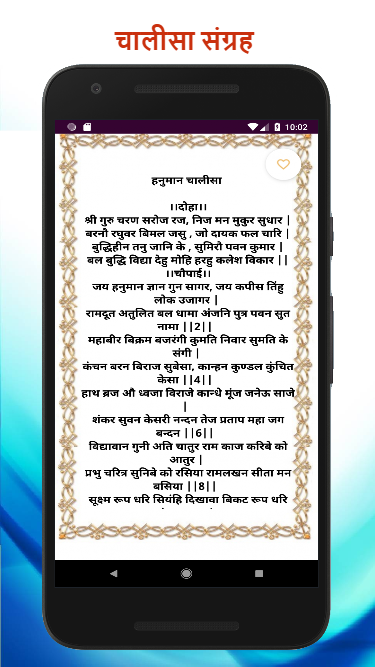 चालीसा संग्रह
10:02
हनुमान चालीसा
।।दोहा।।
श्री गुरु चरण सरोज रज, निज मन मुकुर सुधार |
बरनौ रघुवर बिमल जसु , जो दायक फल चारि |
बुद्धिहीन तनु जानि के , सुमिरौ पवन कुमार |
बल बुद्धि विद्या देहु मोहि हरहु कलेश विकार ||
।।चौपाई।।
जय हनुमान ज्ञान गुन सागर, जय कपीस तिंहु
लोक उजागर |
रामदूत अतुलित बल धामा अंजनि पुत्र पवन सुत
नामा ||2||
महाबीर बिक्रम बजरंगी कुमति निवार सुमति के
संगी |
कंचन बरन बिराज सुबेसा, कान्हन कुण्डल कुंचित
केसा ||4||
हाथ ब्रज औ ध्वजा विराजे कान्धे मूंज जनेऊ साजे
|
शंकर सुवन केसरी नन्दन तेज प्रताप महा जग
बन्दन ||6||
विद्यावान गुनी अति चातुर राम काज करिबे को
आतुर |
प्रभु चरित्र सुनिबे को रसिया रामलखन सीता मन
बसिया ||8||
सूक्ष्म रूप धरि सियंहि दिखावा बिकट रूप धरि